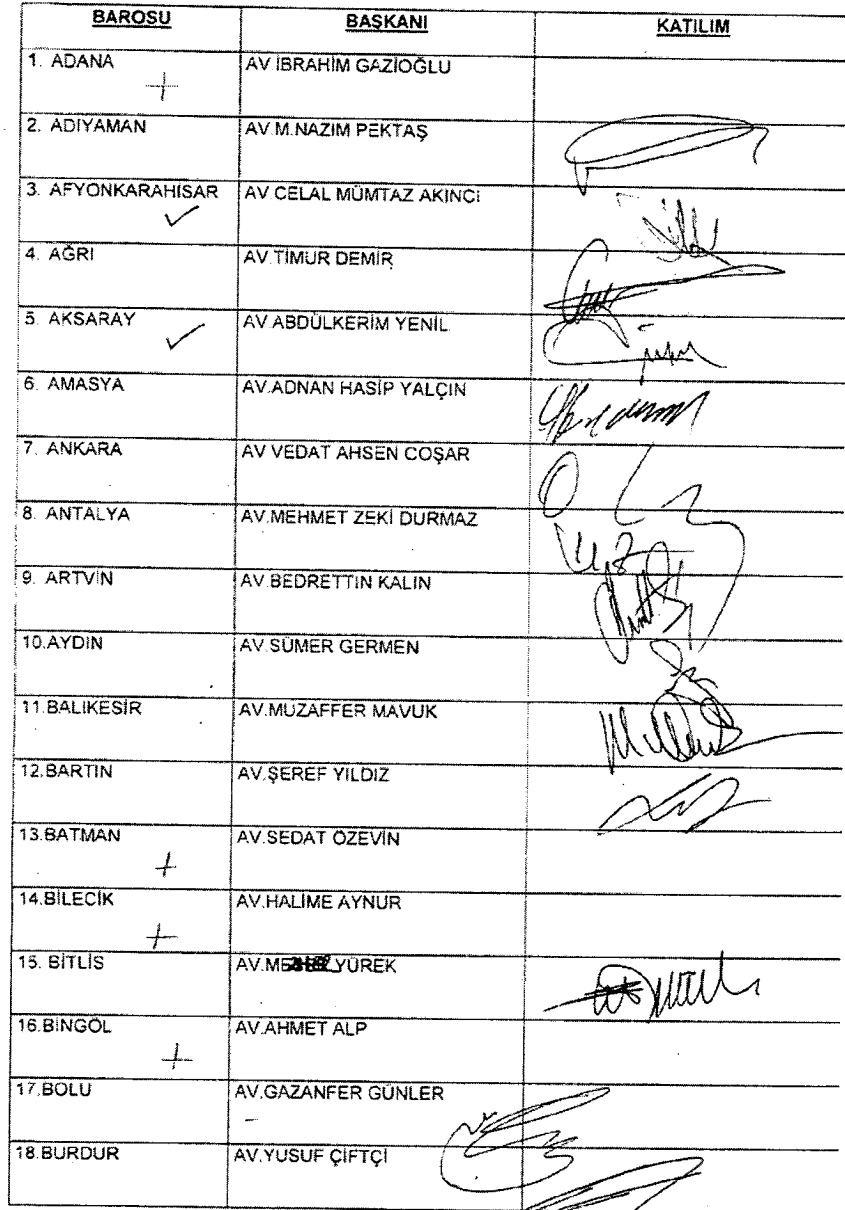 BAROSU BAŞKANI KATILIM
1. ADANA AV İBRAHİM GAZİOĞLU
2. ADIYAMAN AV.M.NAZIM PEKTAŞ
3. AFYONKARAHİSAR AV CELAL MÜMTAZ AKINCI
4. AĞRI AV.TİMUR DEMİR
5. AKSARAY AV ABDÜLKERİM YENİL
6. AMASYA AV.ADNAN HASİP YALÇIN
7. ANKARA AV VEDAT AHSEN COŞAR
8. ANTALYA AV.MEHMET ZEKİ DURMAZ
9. ARTVİN AV BEDRETTİN KALIN
10.AYDIN AV.SÜMER GERMEN
11.BALIKESİR AV.MUZAFFER MAVUK
12.BARTIN AV.ŞEREF YILDIZ
13.BATMAN AV.SEDAT ÖZEVİN
14.BİLECİK AV.HALİME AYNUR
15. BİTLİS YÜREK
16.BİNGÖL AV.AHMET ALP
17.BOLU AV.GAZANFER GÜNLER
18.BURDUR AV.YUSUF ÇİFTÇİ